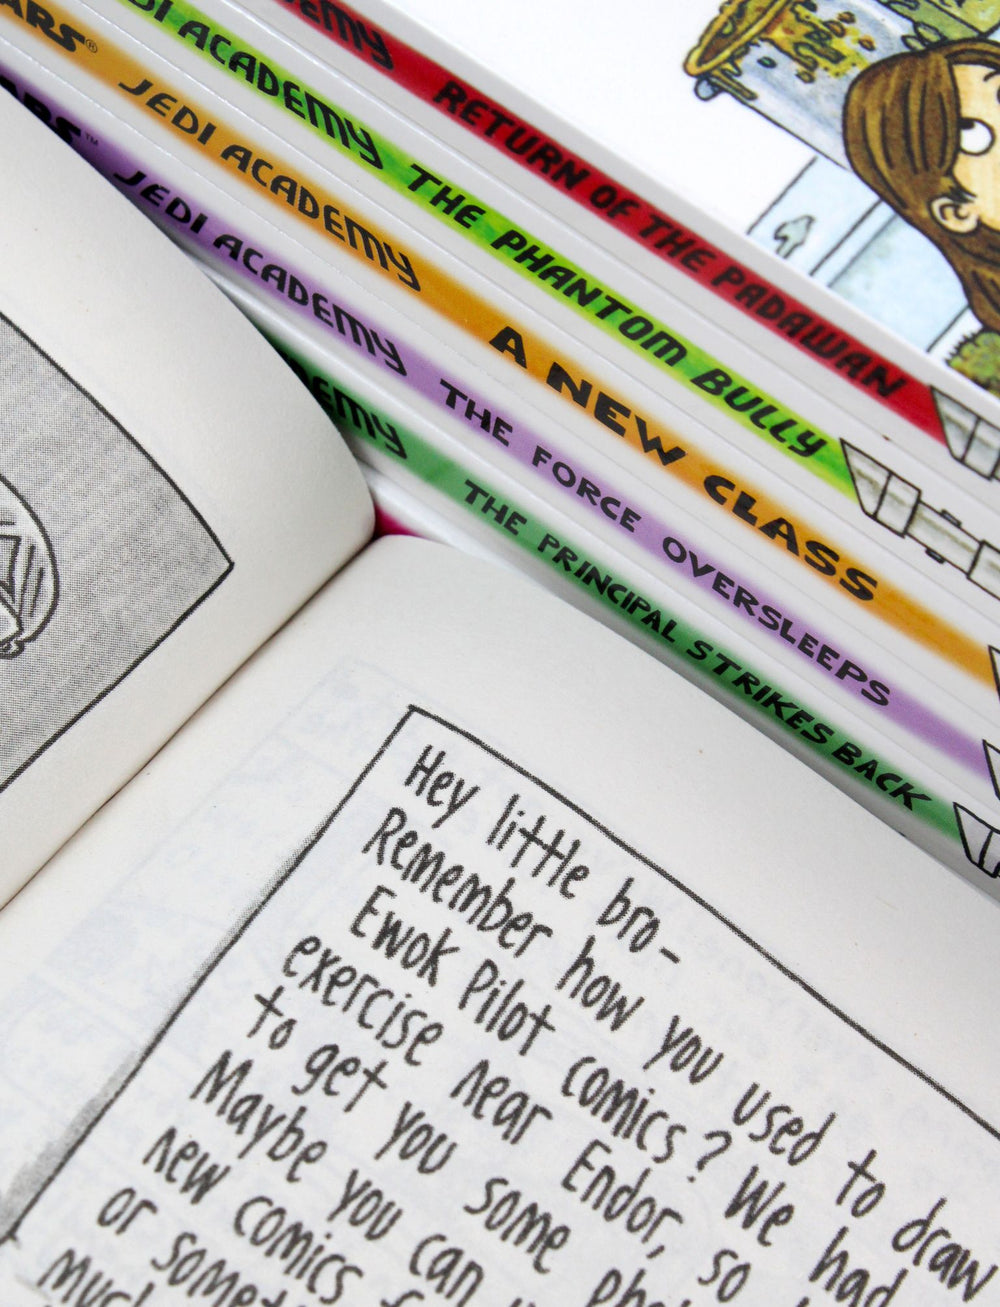 JEDI ACADEMY RETURN OF THE PADAWAN
JEDI ACADEMY THE PHANTOM BULLY
WARS® JEDI ACADEMY A NEW CLASS
WARS™ JEDI ACADEMY THE FORCE OVERSLEEPS
THE PRINCIPAL STRIKES BACK
Hey little bro-
Remember how you used to draw
Ewok Pilot comics? We had
exercise near Endor, so
to get you some
Maybe you can
new comics
or